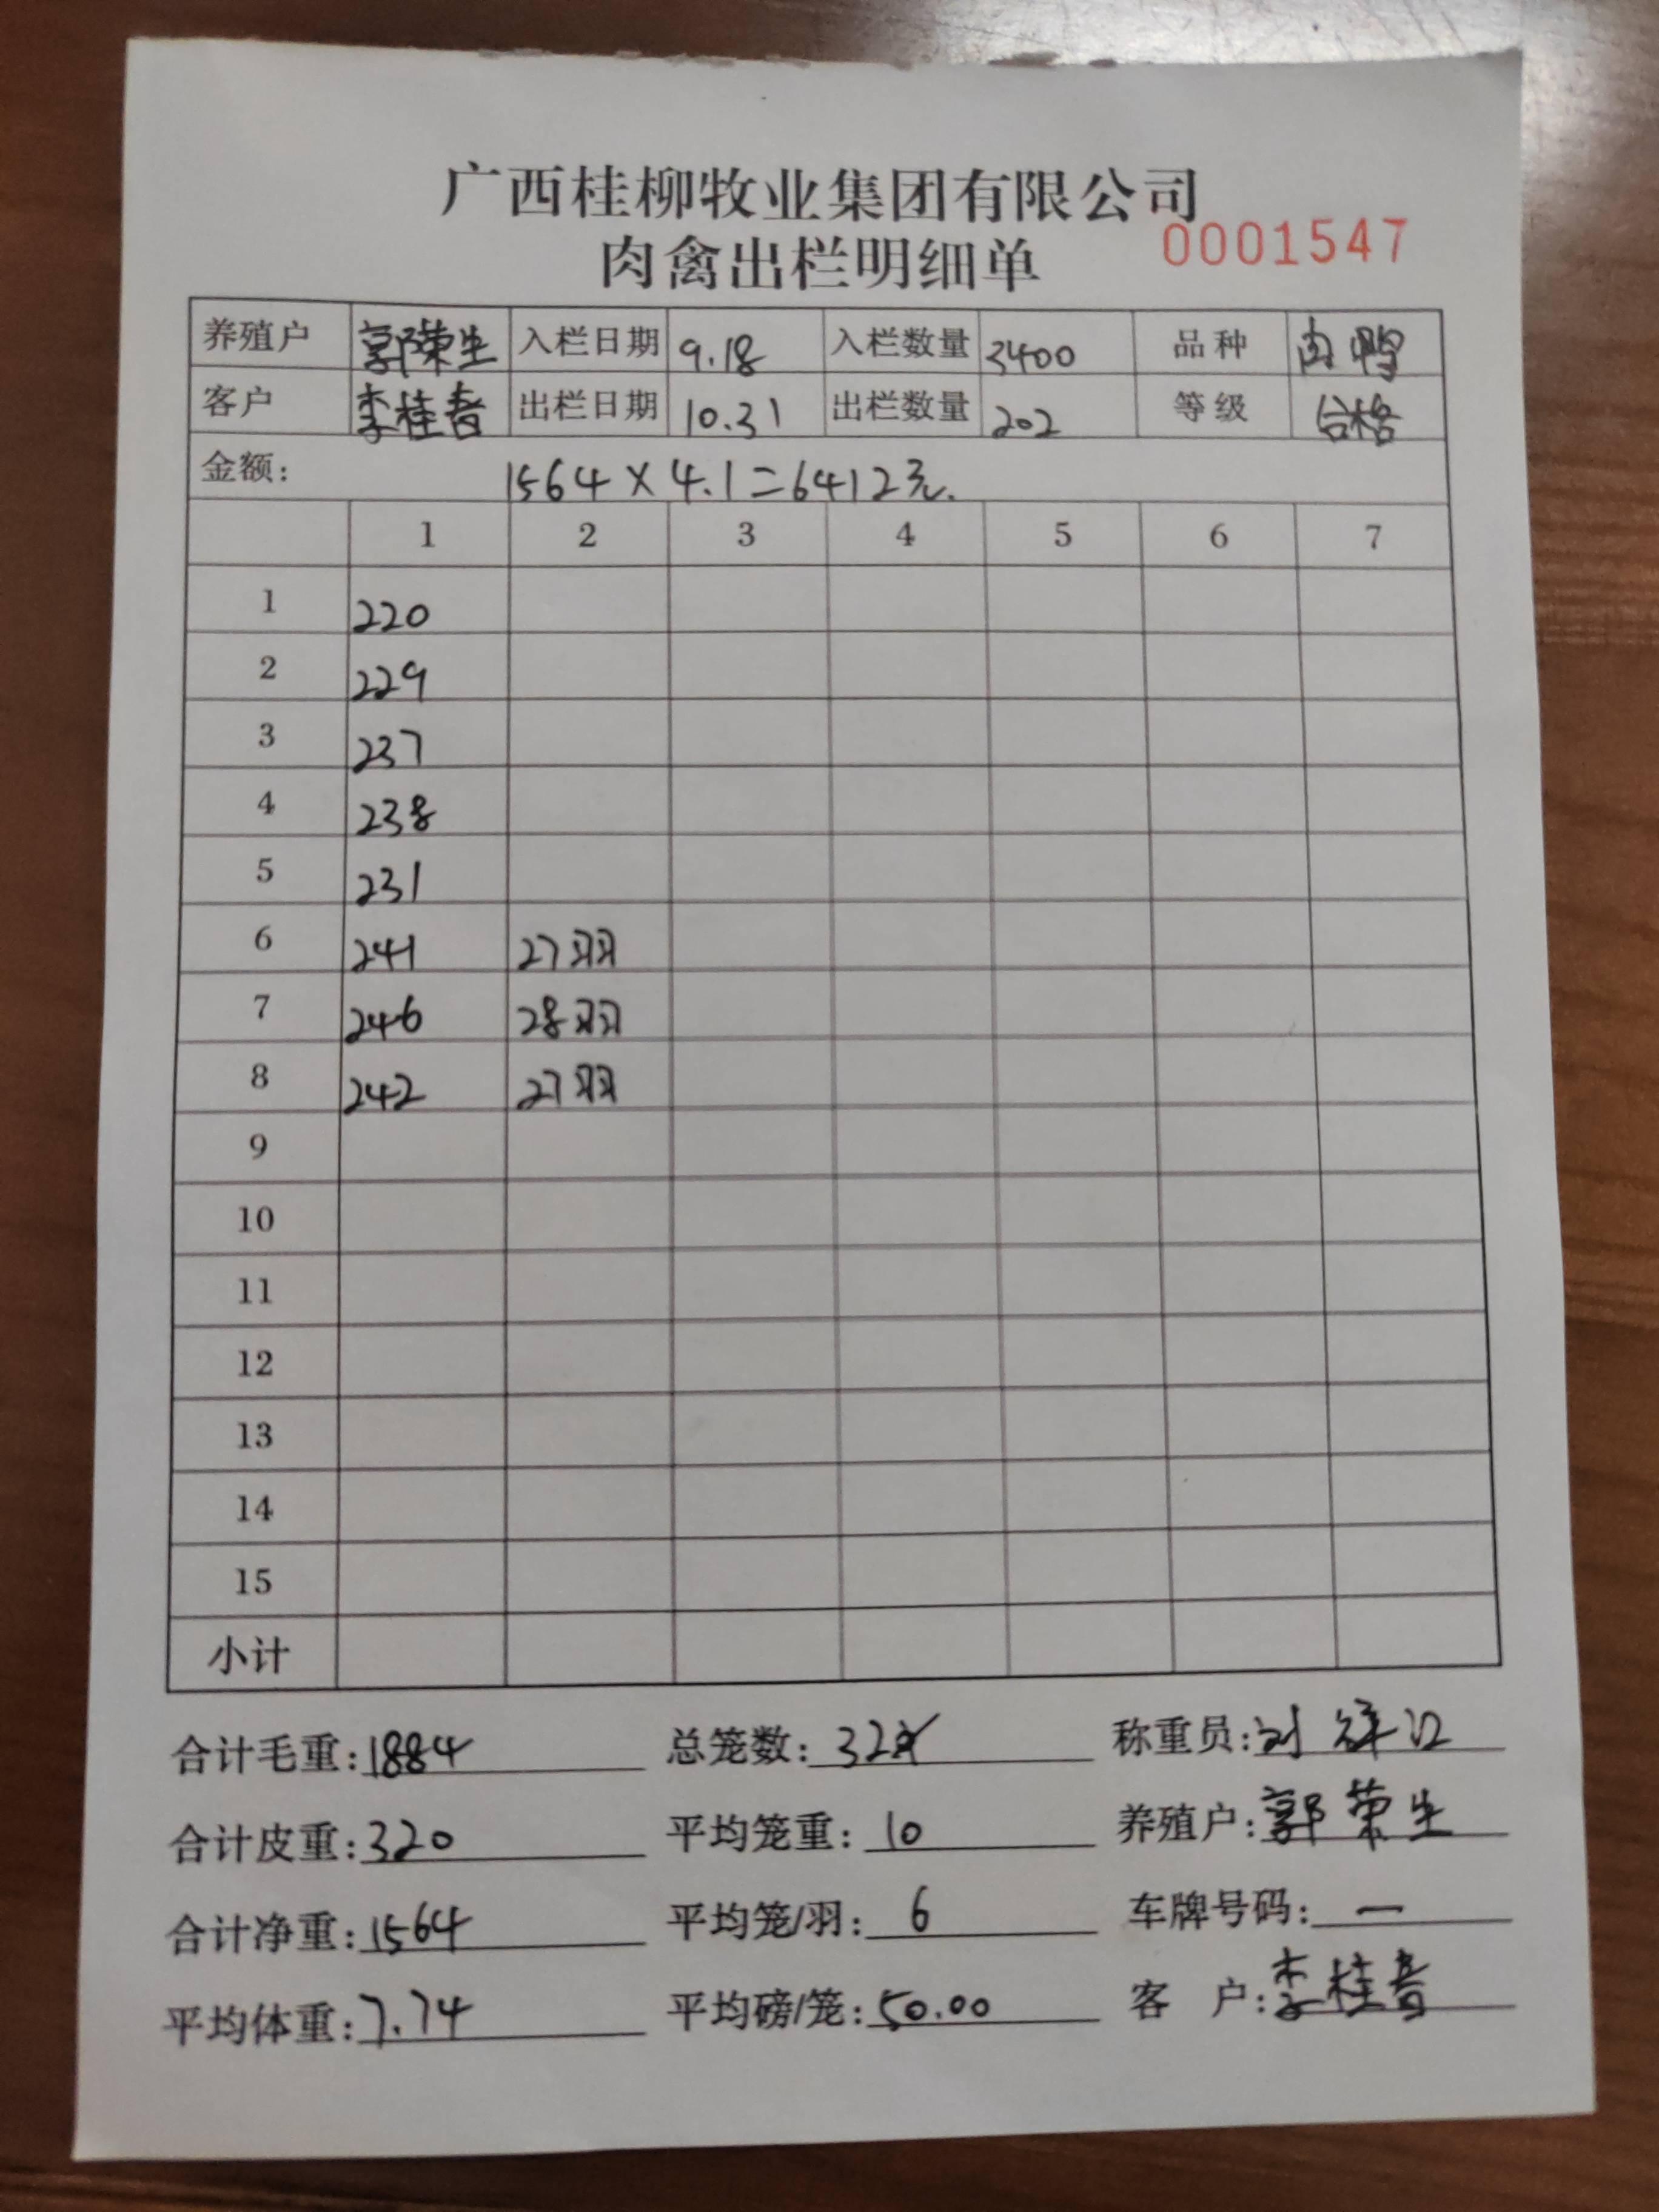 广西桂柳牧业集团有限公司
肉禽出栏明细单 0001547
养殖户 郭荣生 入栏日期 9.18 入栏数量 3400 品种 肉鸭
客户 李桂春 出栏日期 10.31 出栏数量 202 等级 合格
金额： 1564×4.1=6412元.
1 2 3 4 5 6 7
1 220
2 229
3 237
4 238
5 231
6 241 27羽
7 246 28羽
8 242 27羽
9
10
11
12
13
14
15
小计
合计毛重：1884 总笼数：32 称重员：刘
合计皮重：320 平均笼重：10 养殖户：郭荣生
合计净重：1564 平均笼/羽：6 车牌号码：一
平均体重：7.74 平均磅/笼：50.00 客户：李桂春